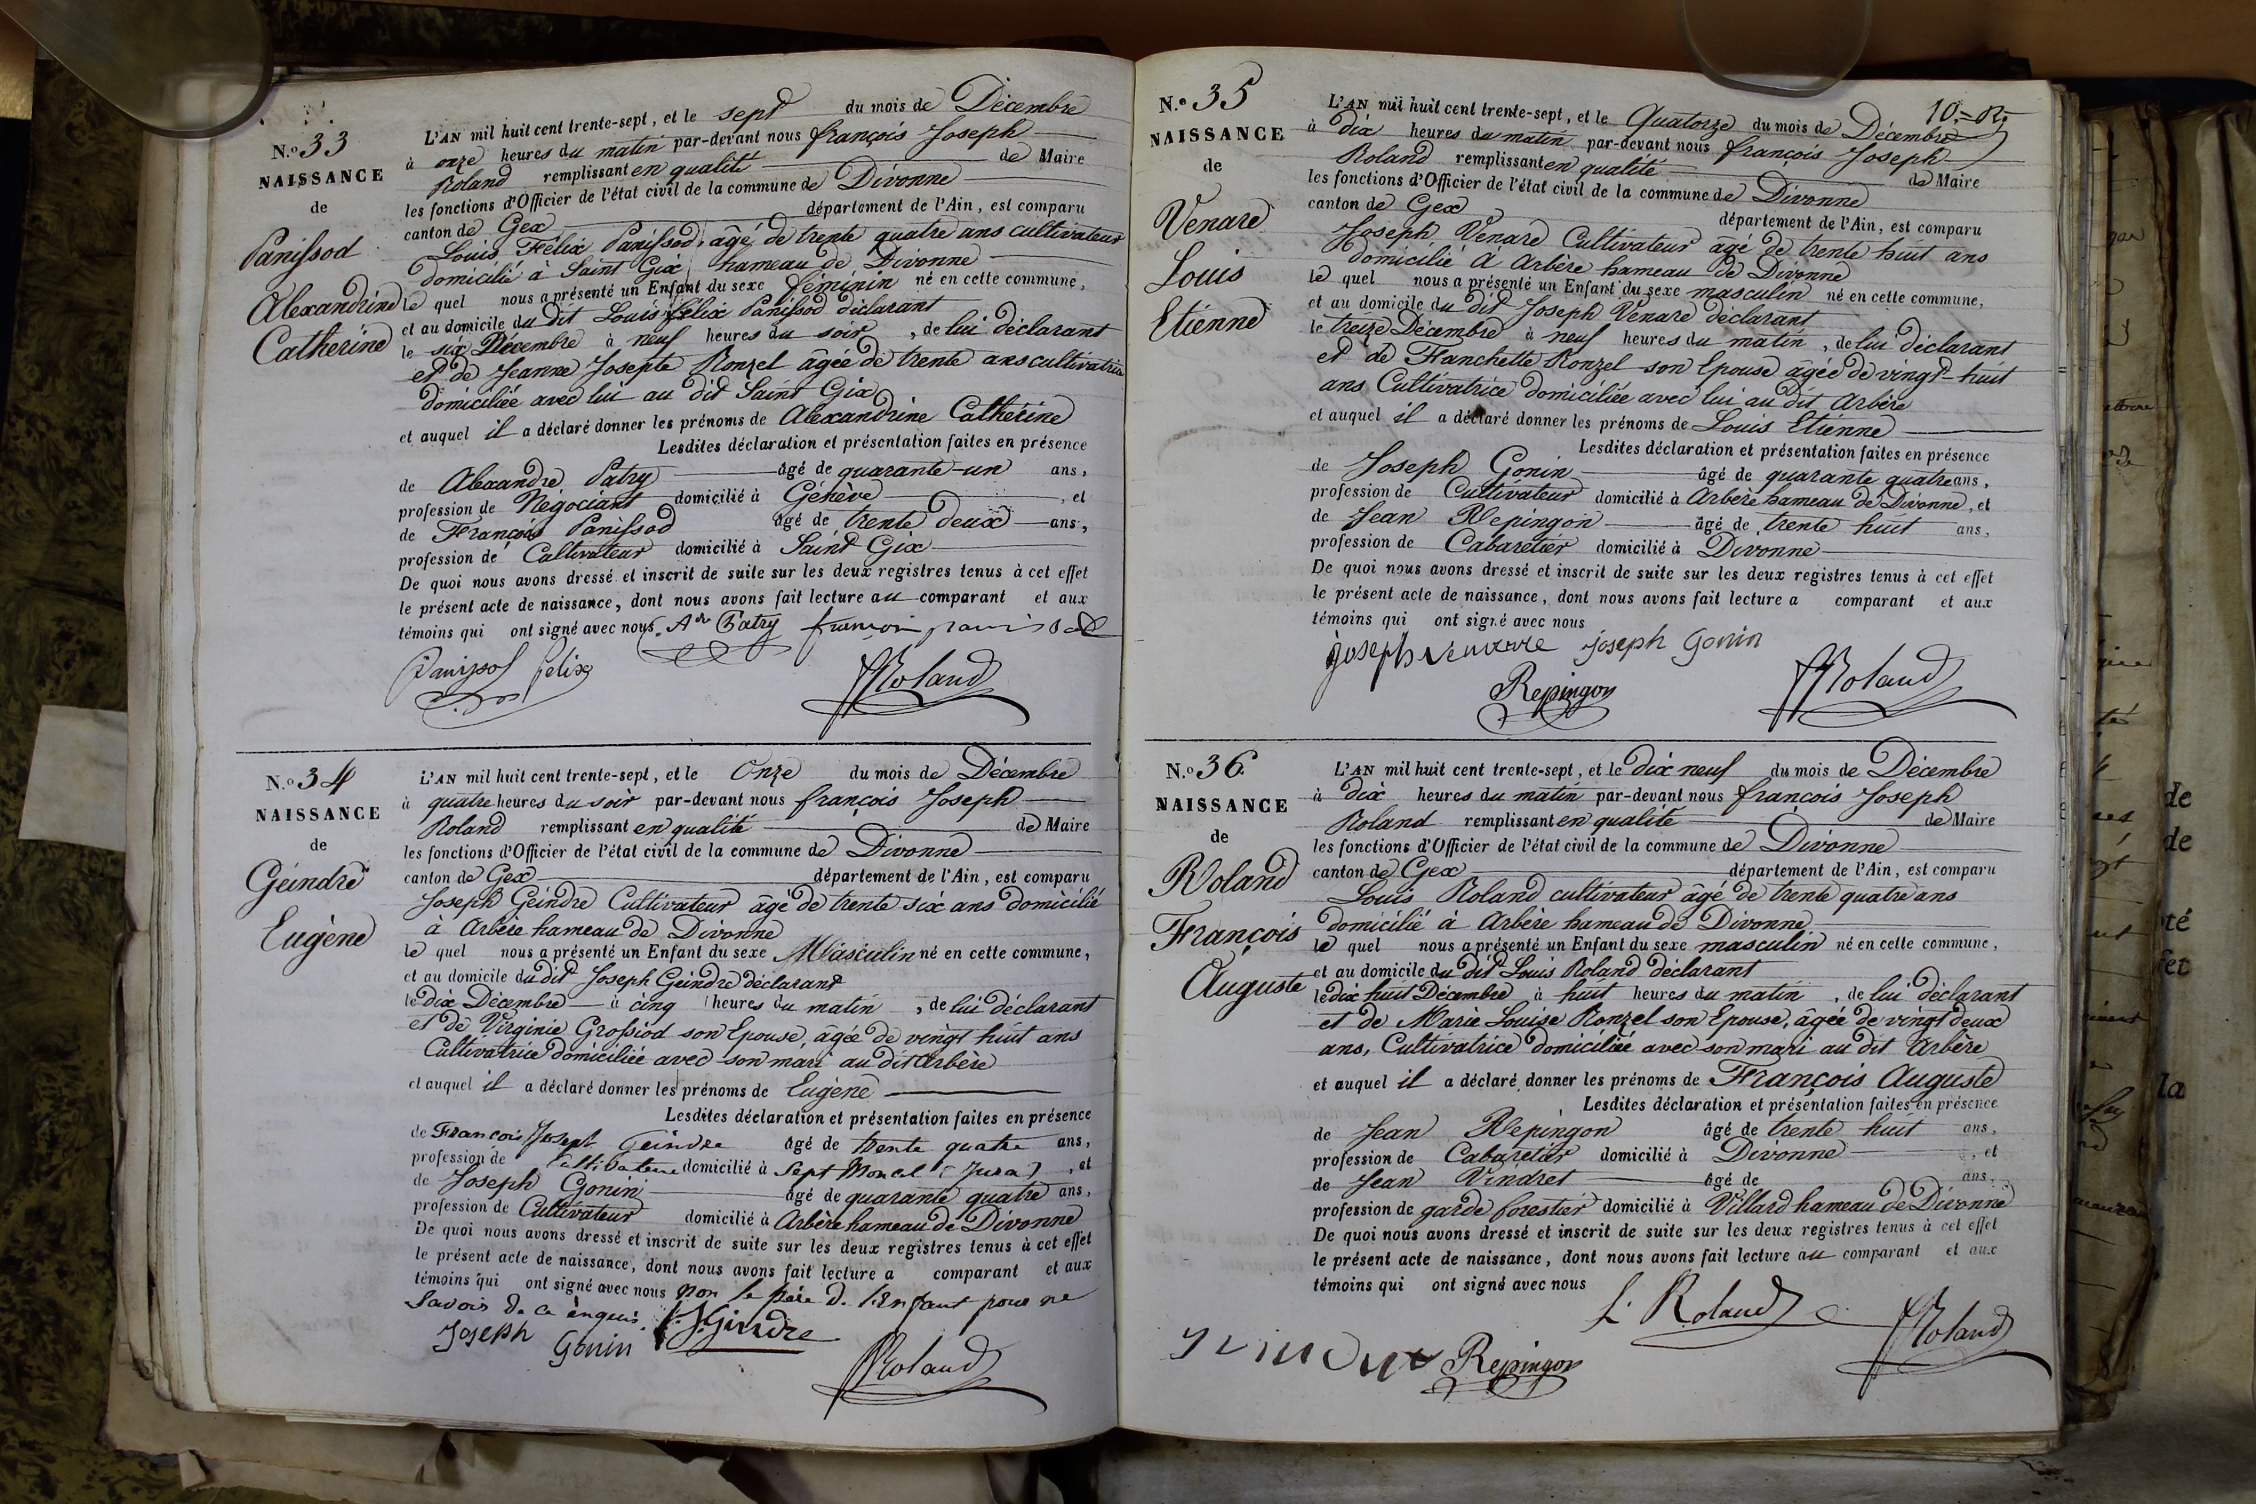 N.o 33
NAISSANCE
de
Panissod
Alexandrine
Catherine
L'AN mil huit cent trente-sept, et le sept du mois de Décembre
à onze heures du matin par-devant nous françois Joseph
Roland remplissant en qualité de Maire
les fonctions d'Officier de l'état civil de la commune de Divonne
canton de Gex département de l'Ain, est comparu
Louis Félix Panissod âgé de trente quatre ans cultivateur
domicilié à Saint Gix hameau de Divonne
le quel nous a présenté un Enfant du sexe féminin né en cette commune,
et au domicile du dit Louis félix Panissod déclarant
le six Décembre à neuf heures du soir, de lui déclarant
et de Jeanne Josepte Ronzel âgée de trente ans cultivatrice
domiciliée avec lui au dit Saint Gix
et auquel il a déclaré donner les prénoms de Alexandrine Catherine
Lesdites déclaration et présentation faites en présence
de Alexandre Patry âgé de quarante-un ans,
profession de Négociant domicilié à Génève, et
de François Panissod âgé de trente deux ans,
profession de Cultivateur domicilié à Saint Gix
De quoi nous avons dressé et inscrit de suite sur les deux registres tenus à cet effet
le présent acte de naissance, dont nous avons fait lecture au comparant et aux
témoins qui ont signé avec nous. Adre Patry françoi panissod
Panissod felix JRoland
N.o 34
NAISSANCE
de
Géindre
Eugène
L'AN mil huit cent trente-sept, et le Onze du mois de Décembre
à quatre heures du soir par-devant nous françois Joseph
Roland remplissant en qualité de Maire
les fonctions d'Officier de l'état civil de la commune de Divonne
canton de Gex département de l'Ain, est comparu
Joseph Géindre Cultivateur âgé de trente six ans domicilié
à Arbère hameau de Divonne
le quel nous a présenté un Enfant du sexe Masculin né en cette commune,
et au domicile du dit Joseph Géindre déclarant
le dix Décembre à cinq heures du matin, de lui déclarant
et de Virginie Grossiod son Epouse, âgée de vingt huit ans
Cultivatrice domiciliée avec son mari au dit Arbère
et auquel il a déclaré donner les prénoms de Eugène
Lesdites déclaration et présentation faites en présence
de François Joseph Geindre âgé de trente quatre ans,
profession de Cultivateur domicilié à Sept Moncel (Jura), et
de Joseph Gonin âgé de quarante quatre ans,
profession de Cultivateur domicilié à Arbère hameau de Divonne
De quoi nous avons dressé et inscrit de suite sur les deux registres tenus à cet effet
le présent acte de naissance, dont nous avons fait lecture a comparant et aux
témoins qui ont signé avec nous non le père de l'Enfant pour ne
savoir de ce enquis.
Joseph Gonin f.J.Gindre
JRoland
10.
N.o 35
NAISSANCE
de
Venare
Louis
Etienne
L'AN mil huit cent trente-sept, et le Quatorze du mois de Décembre
à dix heures du matin par-devant nous françois Joseph
Roland remplissant en qualité de Maire
les fonctions d'Officier de l'état civil de la commune de Divonne
canton de Gex département de l'Ain, est comparu
Joseph Venare Cultivateur âgé de trente huit ans
domicilié à Arbère hameau de Divonne
le quel nous a présenté un Enfant du sexe masculin né en cette commune,
et au domicile du dit Joseph Venare déclarant
le treize Décembre à neuf heures du matin, de lui déclarant
et de Franchette Ronzel son Epouse âgée de vingt-huit
ans Cultivatrice domiciliée avec lui au dit Arbère
et auquel il a déclaré donner les prénoms de Louis Etienne
Lesdites déclaration et présentation faites en présence
de Joseph Gonin âgé de quarante quatre ans,
profession de Cultivateur domicilié à Arbère hameau de Divonne, et
de Jean Répingon âgé de trente huit ans,
profession de Cabaretier domicilié à Divonne
De quoi nous avons dressé et inscrit de suite sur les deux registres tenus à cet effet
le présent acte de naissance, dont nous avons fait lecture a comparant et aux
témoins qui ont signé avec nous
joseph venarre joseph Gonin
Repingon JRoland
N.o 36
NAISSANCE
de
Roland
François
Auguste
L'AN mil huit cent trente-sept, et le dix neuf du mois de Décembre
à dix heures du matin par-devant nous françois Joseph
Roland remplissant en qualité de Maire
les fonctions d'Officier de l'état civil de la commune de Divonne
canton de Gex département de l'Ain, est comparu
Louis Roland cultivateur âgé de trente quatre ans
domicilié à Arbère hameau de Divonne
le quel nous a présenté un Enfant du sexe masculin né en cette commune,
et au domicile du dit Louis Roland déclarant
le dix huit Décembre à huit heures du matin, de lui déclarant
et de Marie Louise Ronzel son Epouse, âgée de vingt deux
ans, Cultivatrice domiciliée avec son mari au dit Arbère
et auquel il a déclaré donner les prénoms de François Auguste
Lesdites déclaration et présentation faites en présence
de Jean Répingon âgé de trente huit ans,
profession de Cabaretier domicilié à Divonne, et
de Jean Vindret âgé de ans,
profession de garde forestier domicilié à Villard hameau de Divonne
De quoi nous avons dressé et inscrit de suite sur les deux registres tenus à cet effet
le présent acte de naissance, dont nous avons fait lecture au comparant et aux
témoins qui ont signé avec nous
L. Roland
Repingon JRoland
de
de
té
fet
la